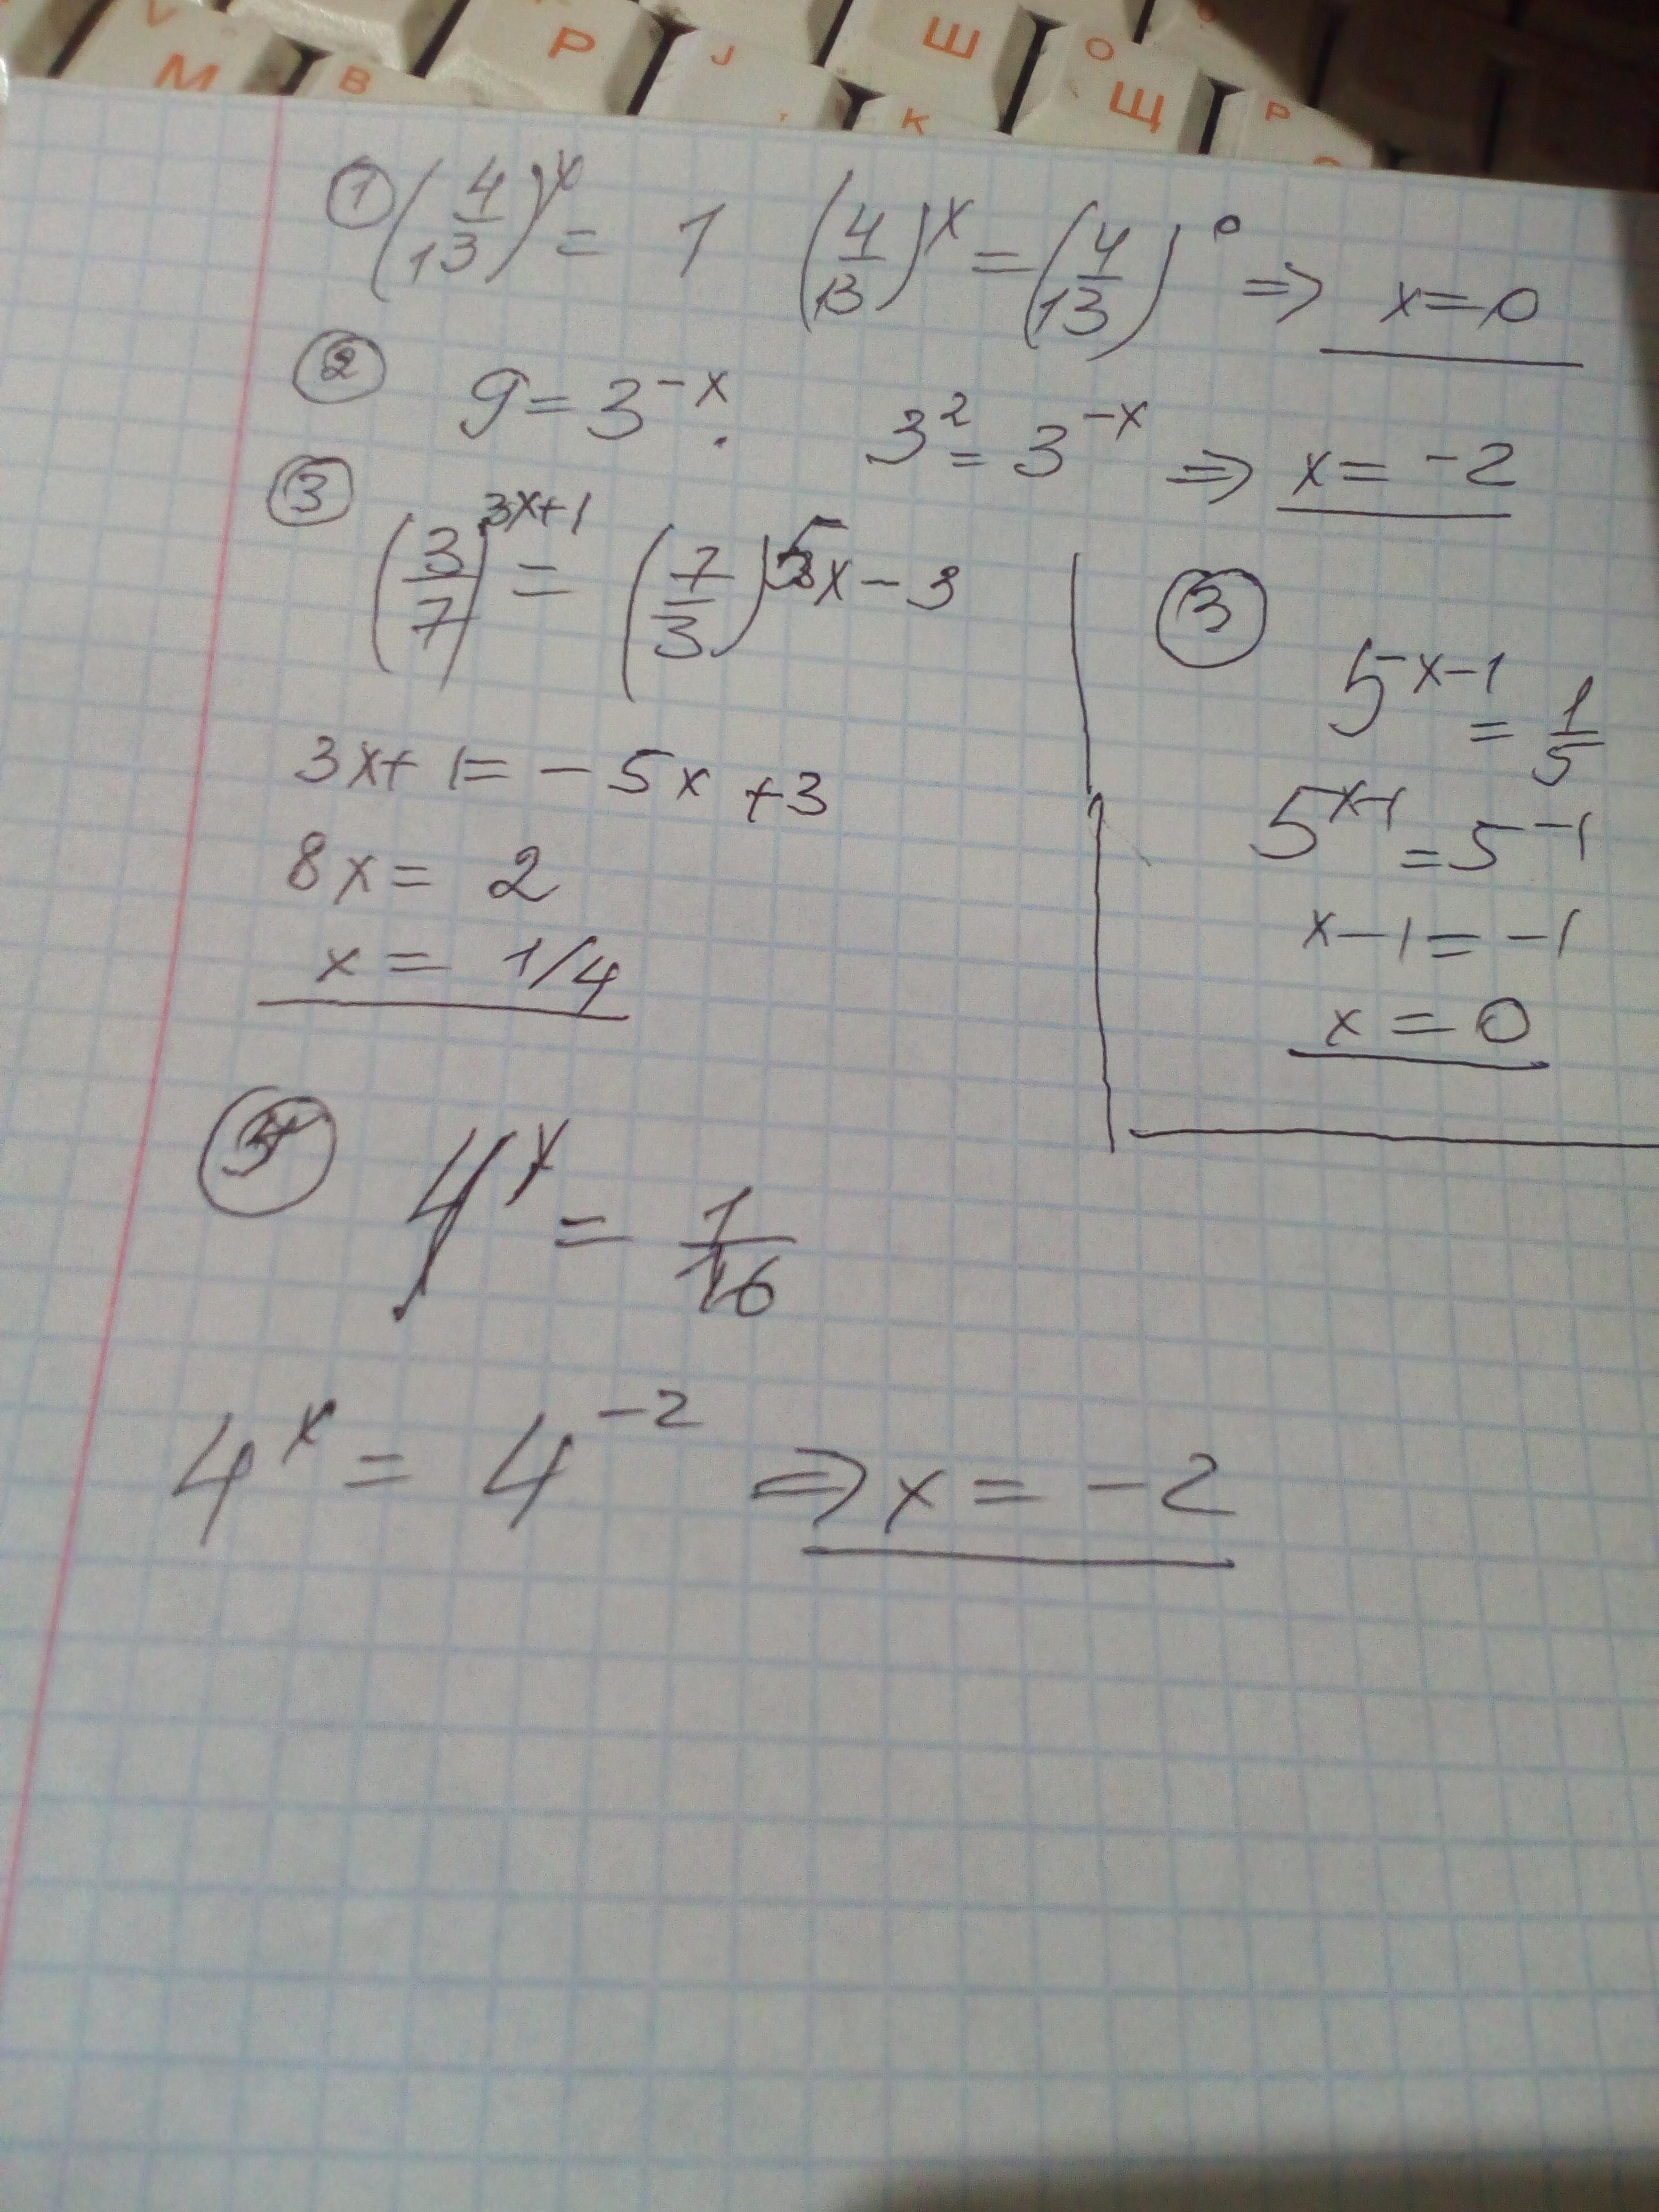 V М B Р J Ш O Щ К Р
① (4/13)^x = 1 (4/13)^x = (4/13)^0 ⇒ x = 0
② 9 = 3^-x . 3^2 = 3^-x ⇒ x = -2
③ (3/7)^3x+1 = (7/3)^5x-3
3x+1 = -5x +3
8x = 2
x = 1/4
③ 5^x-1 = 1/5
5^x-1 = 5^-1
x-1 = -1
x = 0
4^x = 1/16
4^x = 4^-2 ⇒ x = -2